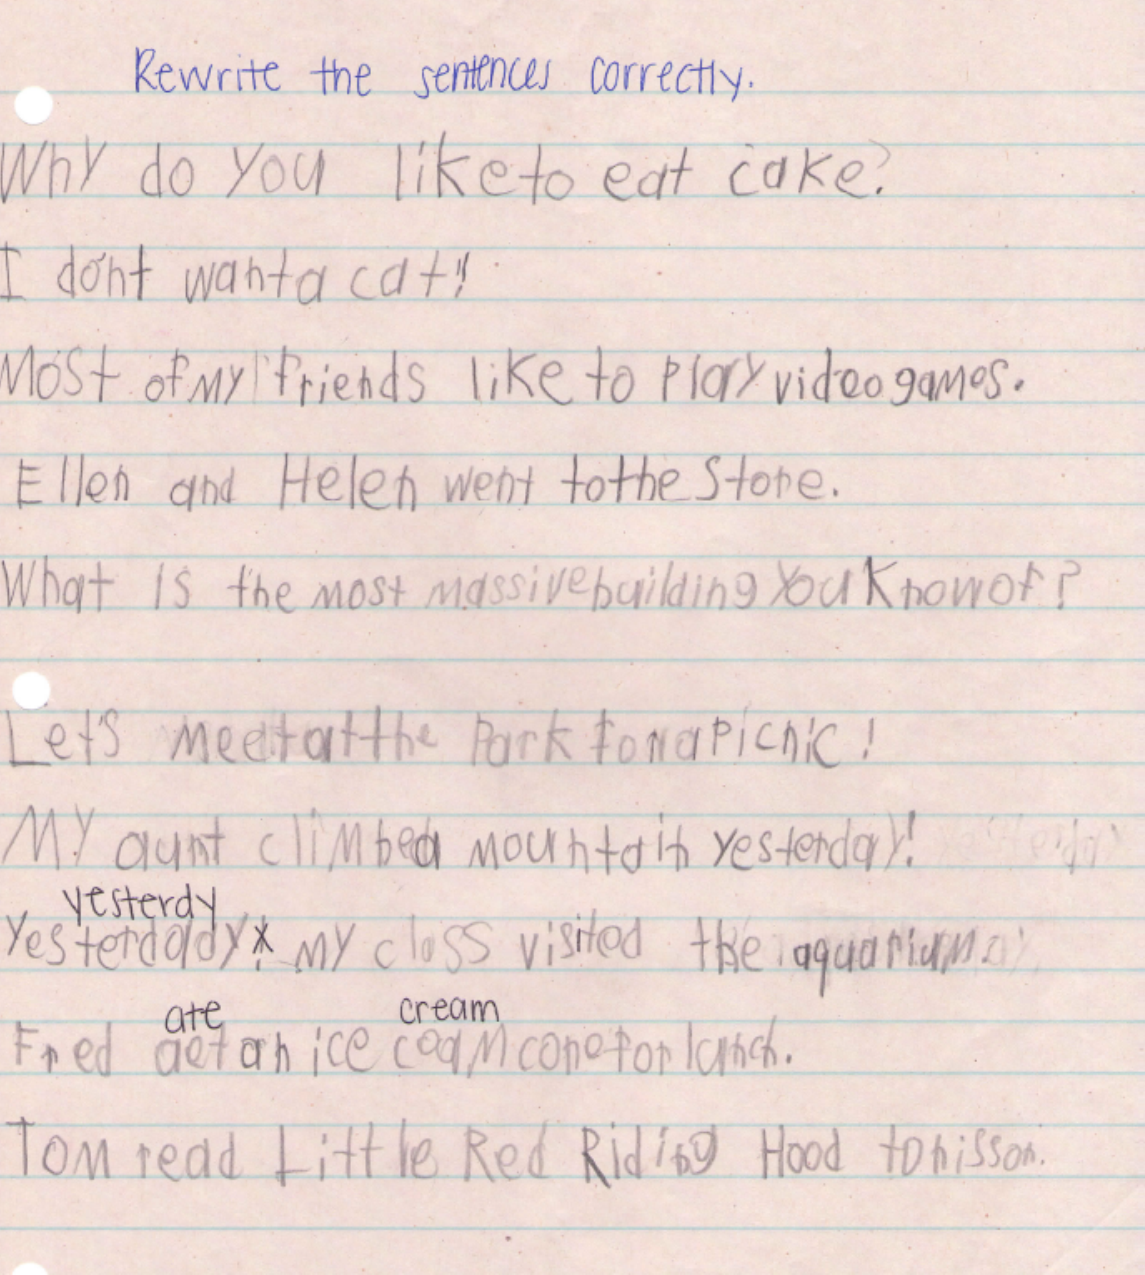 Rewrite the sentences correctly.
Why do you like to eat cake?
I don't want a cat!
Most of my friends like to play video games.
Ellen and Helen went to the Store.
What is the most massive building you know of?
Let's meet at the park for a picnic!
My aunt climbed a mountain yesterday!
yesterdy
Yesterdady, my class visited the aquarium.
ate cream
Fred aet an ice coam cone for lunch.
Tom read Little Red Riding Hood to his son.